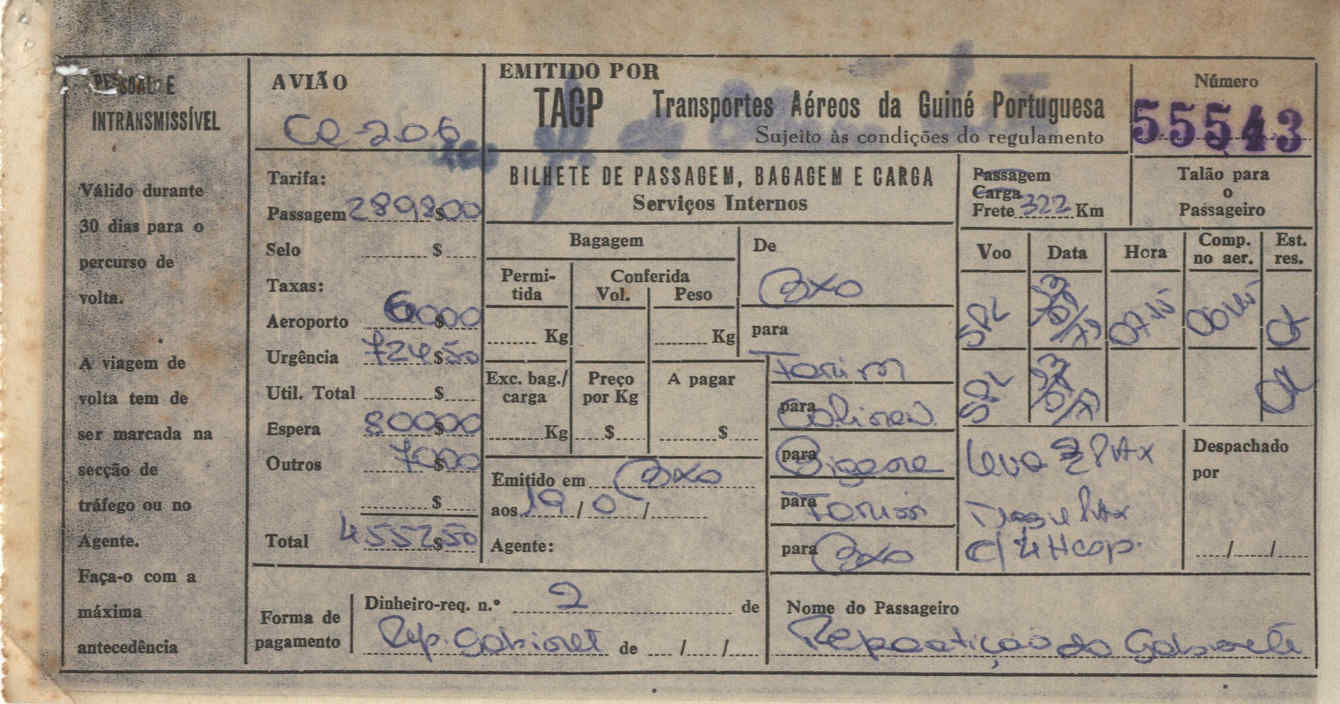 PESSOAL E
INTRANSMISSÍVEL
Válido durante
30 dias para o
percurso de
volta.
A viagem de
volta tem de
ser marcada na
secção de
tráfego ou no
Agente.
Faça-o com a
máxima
antecedência
AVIÃO
CR-206
Tarifa:
Passagem 2898$00
Selo $
Taxas:
Aeroporto 60$00
Urgência 724$50
Util. Total $
Espera 800$00
Outros 70$00
$
Total 4552$50
EMITIDO POR
TAGP Transportes Aéreos da Guiné Portuguesa
Sujeito às condições do regulamento
Número
55543
BILHETE DE PASSAGEM, BAGAGEM E CARGA
Serviços Internos
Passagem
Carga
Frete 322 Km
Talão para
o
Passageiro
Bagagem
Permi-
tida
Conferida
Vol. Peso
Kg Kg
Exc. bag./
carga
Preço
por Kg
A pagar
Kg $ $
Emitido em Bxo
aos 19 / 0 /
Agente:
De
Bxo
para
Farim
para
para
Bigene
para Farim
para Bxo
Voo Data Hora Comp.
no aer. Est.
res.
SPL 0715 OK
SPL OK
Leva 2 PAX
PAX
c/ 4 H
Despachado
por
/ /
Forma de
pagamento
Dinheiro-req. n.º 2 de
Rep. Gabinet de / /
Nome do Passageiro
Repartição do Gabinete